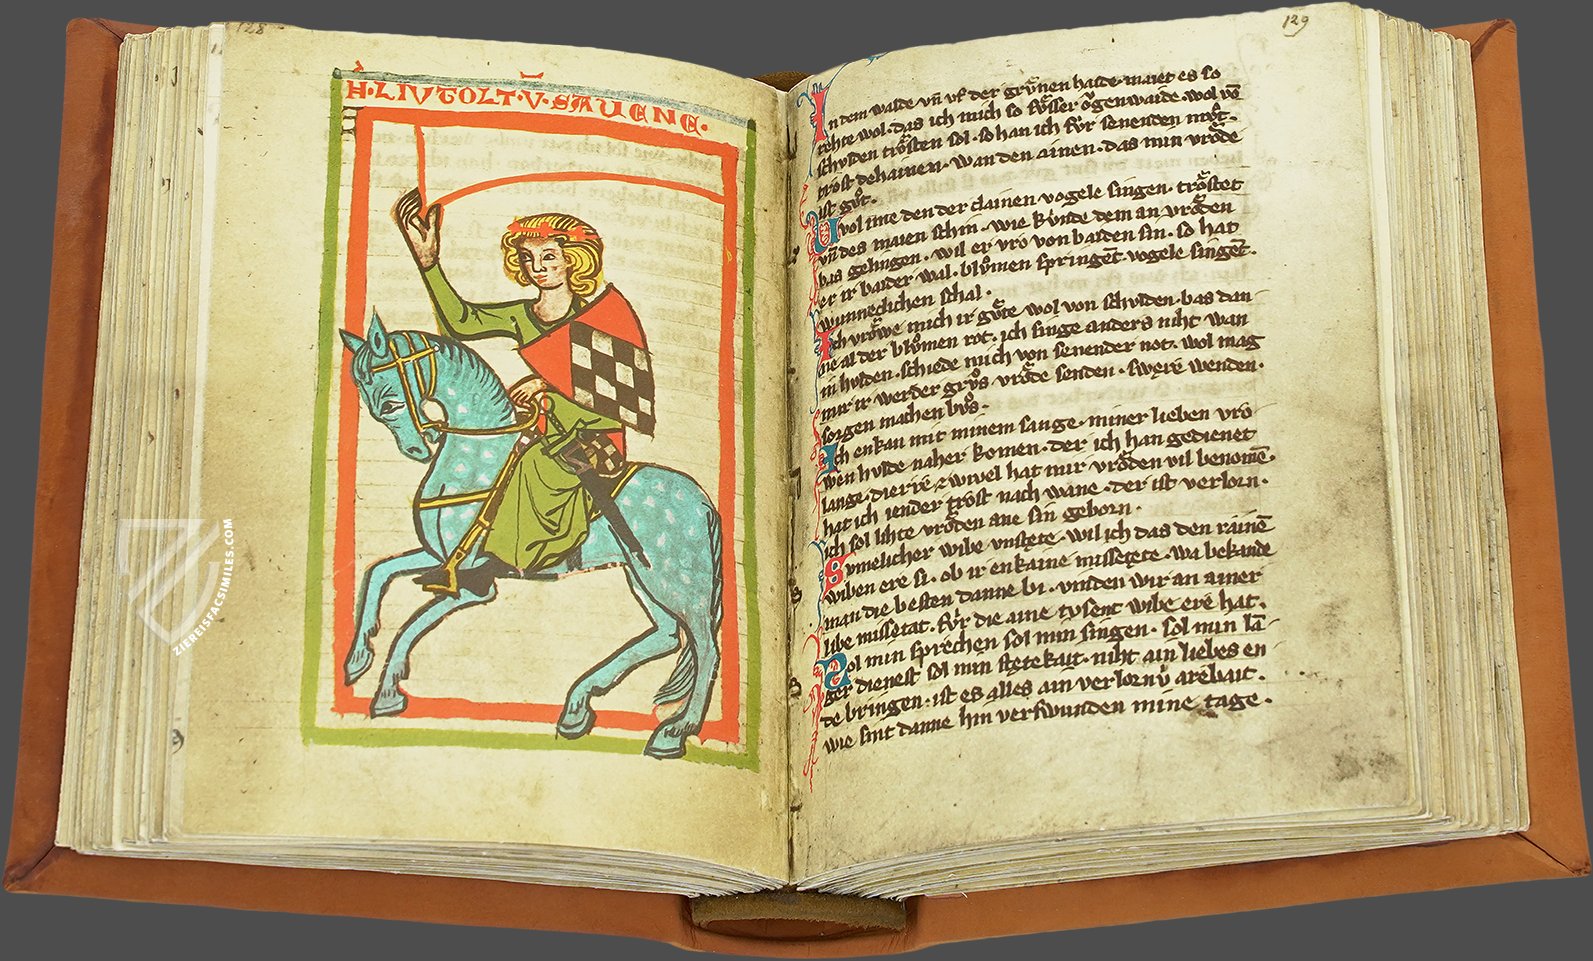 128
H·LIVTOLT·V̄·SAVENE·
ZIEREISFACSIMILES.COM
129
In dem walde vn̄ vf der grůnen haide· maiet es so
rehte wol· das ich mich so sůsser ǒgenwaide· wol vō
schulden trǒsten sol· so han ich fv́r senenden můt·
trost dehainen· wan den ainen· das min vrǒde
ist gůt·
Uvol ime den der clainen vogele singen· trǒstet
vn̄ des maien schin· wie kv́nde dem an vrǒden
bas gelingen· wil er vro von baiden sin· so hat
er ir baider wal· blůmen springēt vogele singēt·
wunneclichen schal·
Ich vrǒwe mich ir gůte wol von schulden· bas dan
ne al der blůmen rot· ich singe anders niht wan
in hulden· schiede mich von senender not· wol mag
mir ir werder grůs· vrǒde senden· swerē wenden·
sorgen machen bůs·
Ich enkan mit minem sange· miner lieben vro
wen hulde naher komen· der ich han gedienet
lange· zwivel hat mir vrǒden vil benomē·
hat ich iender trost nach wane· der ist verlorn·
ich sol lihte vrǒden ane sin geborn·
Sumelicher wibe vnstete· wil ich das den rainē
wiben ere si· ob ir enkaine missetete· wa bekande
man die besten danne bi· vnden wir an ainer
libe missetat· fv́r die aine tusent wibe ere hat·
Sol min sprechen sol min singen· sol min lā
ger dienest sol min stetekait· niht ain liebes en
de bringen· ist es alles ain verlornv́ arebait·
wie sint danne hin verswunden mine tage·